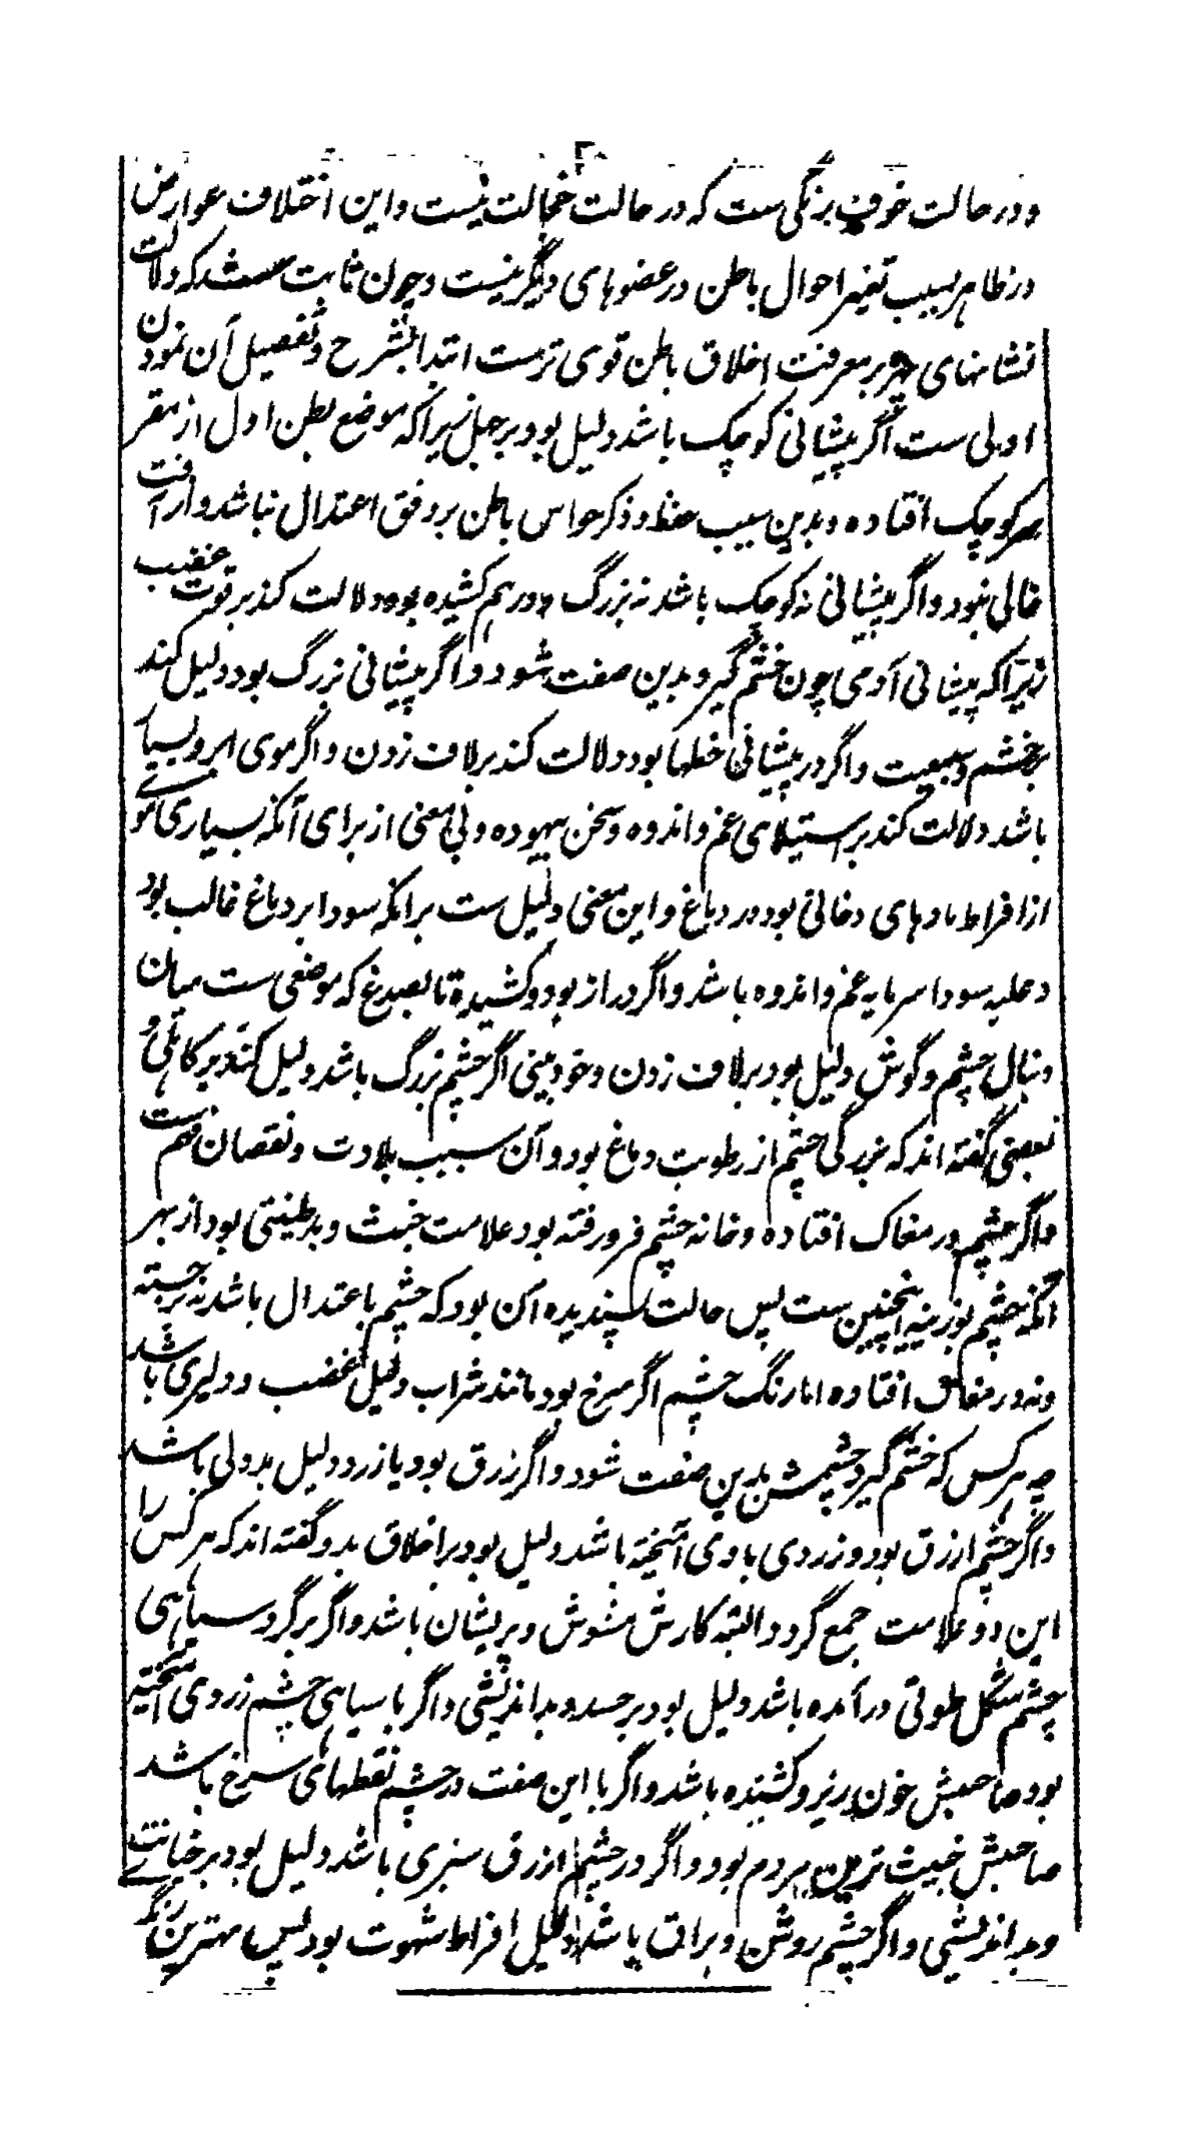 و در حالت خوف برنگی ست که در حالت خجالت نیست و این اختلاف عوارض
در ظاهر بسبب تغیر احوال باطن در عضوهای دیگر نیست و چون ثابت شد که دلالت
نشانهای چهره بر معرفت اخلاق باطن قوی ترست ابتدا بشرح و تفصیل آن نمودن
اولی ست اگر پیشانی کوچک باشد دلیل بود بر جهل زیرا که موضع بطن اول از مقر
سر کوچک افتاده و بدین سبب حفظ و ذکر حواس باطن بر وفق اعتدال نباشد و از آفت
خالی نبود و اگر پیشانی نه کوچک باشد نه بزرگ و درهم کشیده بود دلالت کند بر قوت غضب
زیرا که پیشانی آدمی چون خشم گیرد بدین صفت شود و اگر پیشانی بزرگ بود دلیل کند
بر خشم و سبعیت و اگر در پیشانی خطها بود دلالت کند بر لاف زدن و اگر موی ابرو بسیار
باشد دلالت کند بر استیلای غم و اندوه و سخن بیهوده و بی معنی از برای آنکه بسیاری موی
از افراط مادهای دخانی بود در دماغ و این معنی دلیل ست برانکه سودا بر دماغ غالب بود
و غلبه سودا سرمایه غم و اندوه باشد و اگر دراز بود و کشیده تا بصدغ که موضعی ست میان
دنبال چشم و گوش دلیل بود بر لاف زدن و خودبینی اگر چشم بزرگ باشد دلیل کند بر کاهلی و
بعضی گفته اند که بزرگی چشم از رطوبت دماغ بود و آن سبب بلادت و نقصان فهم ست
و اگر چشم در مغاک افتاده و خانه چشم فرو رفته بود علامت خبث و بدطینتی بود از بهر
آنکه چشم بوزینه اینچنین ست پس حالت پسندیده آن بود که چشم باعتدال باشد نه برجسته
و نه در مغاک افتاده اما رنگ چشم اگر سرخ بود مانند شراب دلیل غضب و دلیری باشد
چه هر کس که خشم گیرد چشمش بدین صفت شود و اگر زرق بود یا زرد دلیل بددلی باشد
و اگر چشم ازرق بود و زردی با وی آمیخته باشد دلیل بود بر اخلاق بد و گفته اند که هر کس را
این دو علامت جمع گردد البته کارش مشوش و پریشان باشد و اگر برگرد سیاهی
چشم شکل طوقی درآمده باشد دلیل بود بر حسد و بداندیشی و اگر با سیاهی چشم زردی آمیخته
بود صاحبش خون ریز و کشنده باشد و اگر با این صفت در چشم نقطهای سرخ باشد
صاحبش خبیث ترین مردم بود و اگر در چشم ازرق سبزی باشد دلیل بود بر خیانت
و بداندیشی و اگر چشم روشن و براق باشد دلیل افراط شهوت بود پس بهترین رنگ